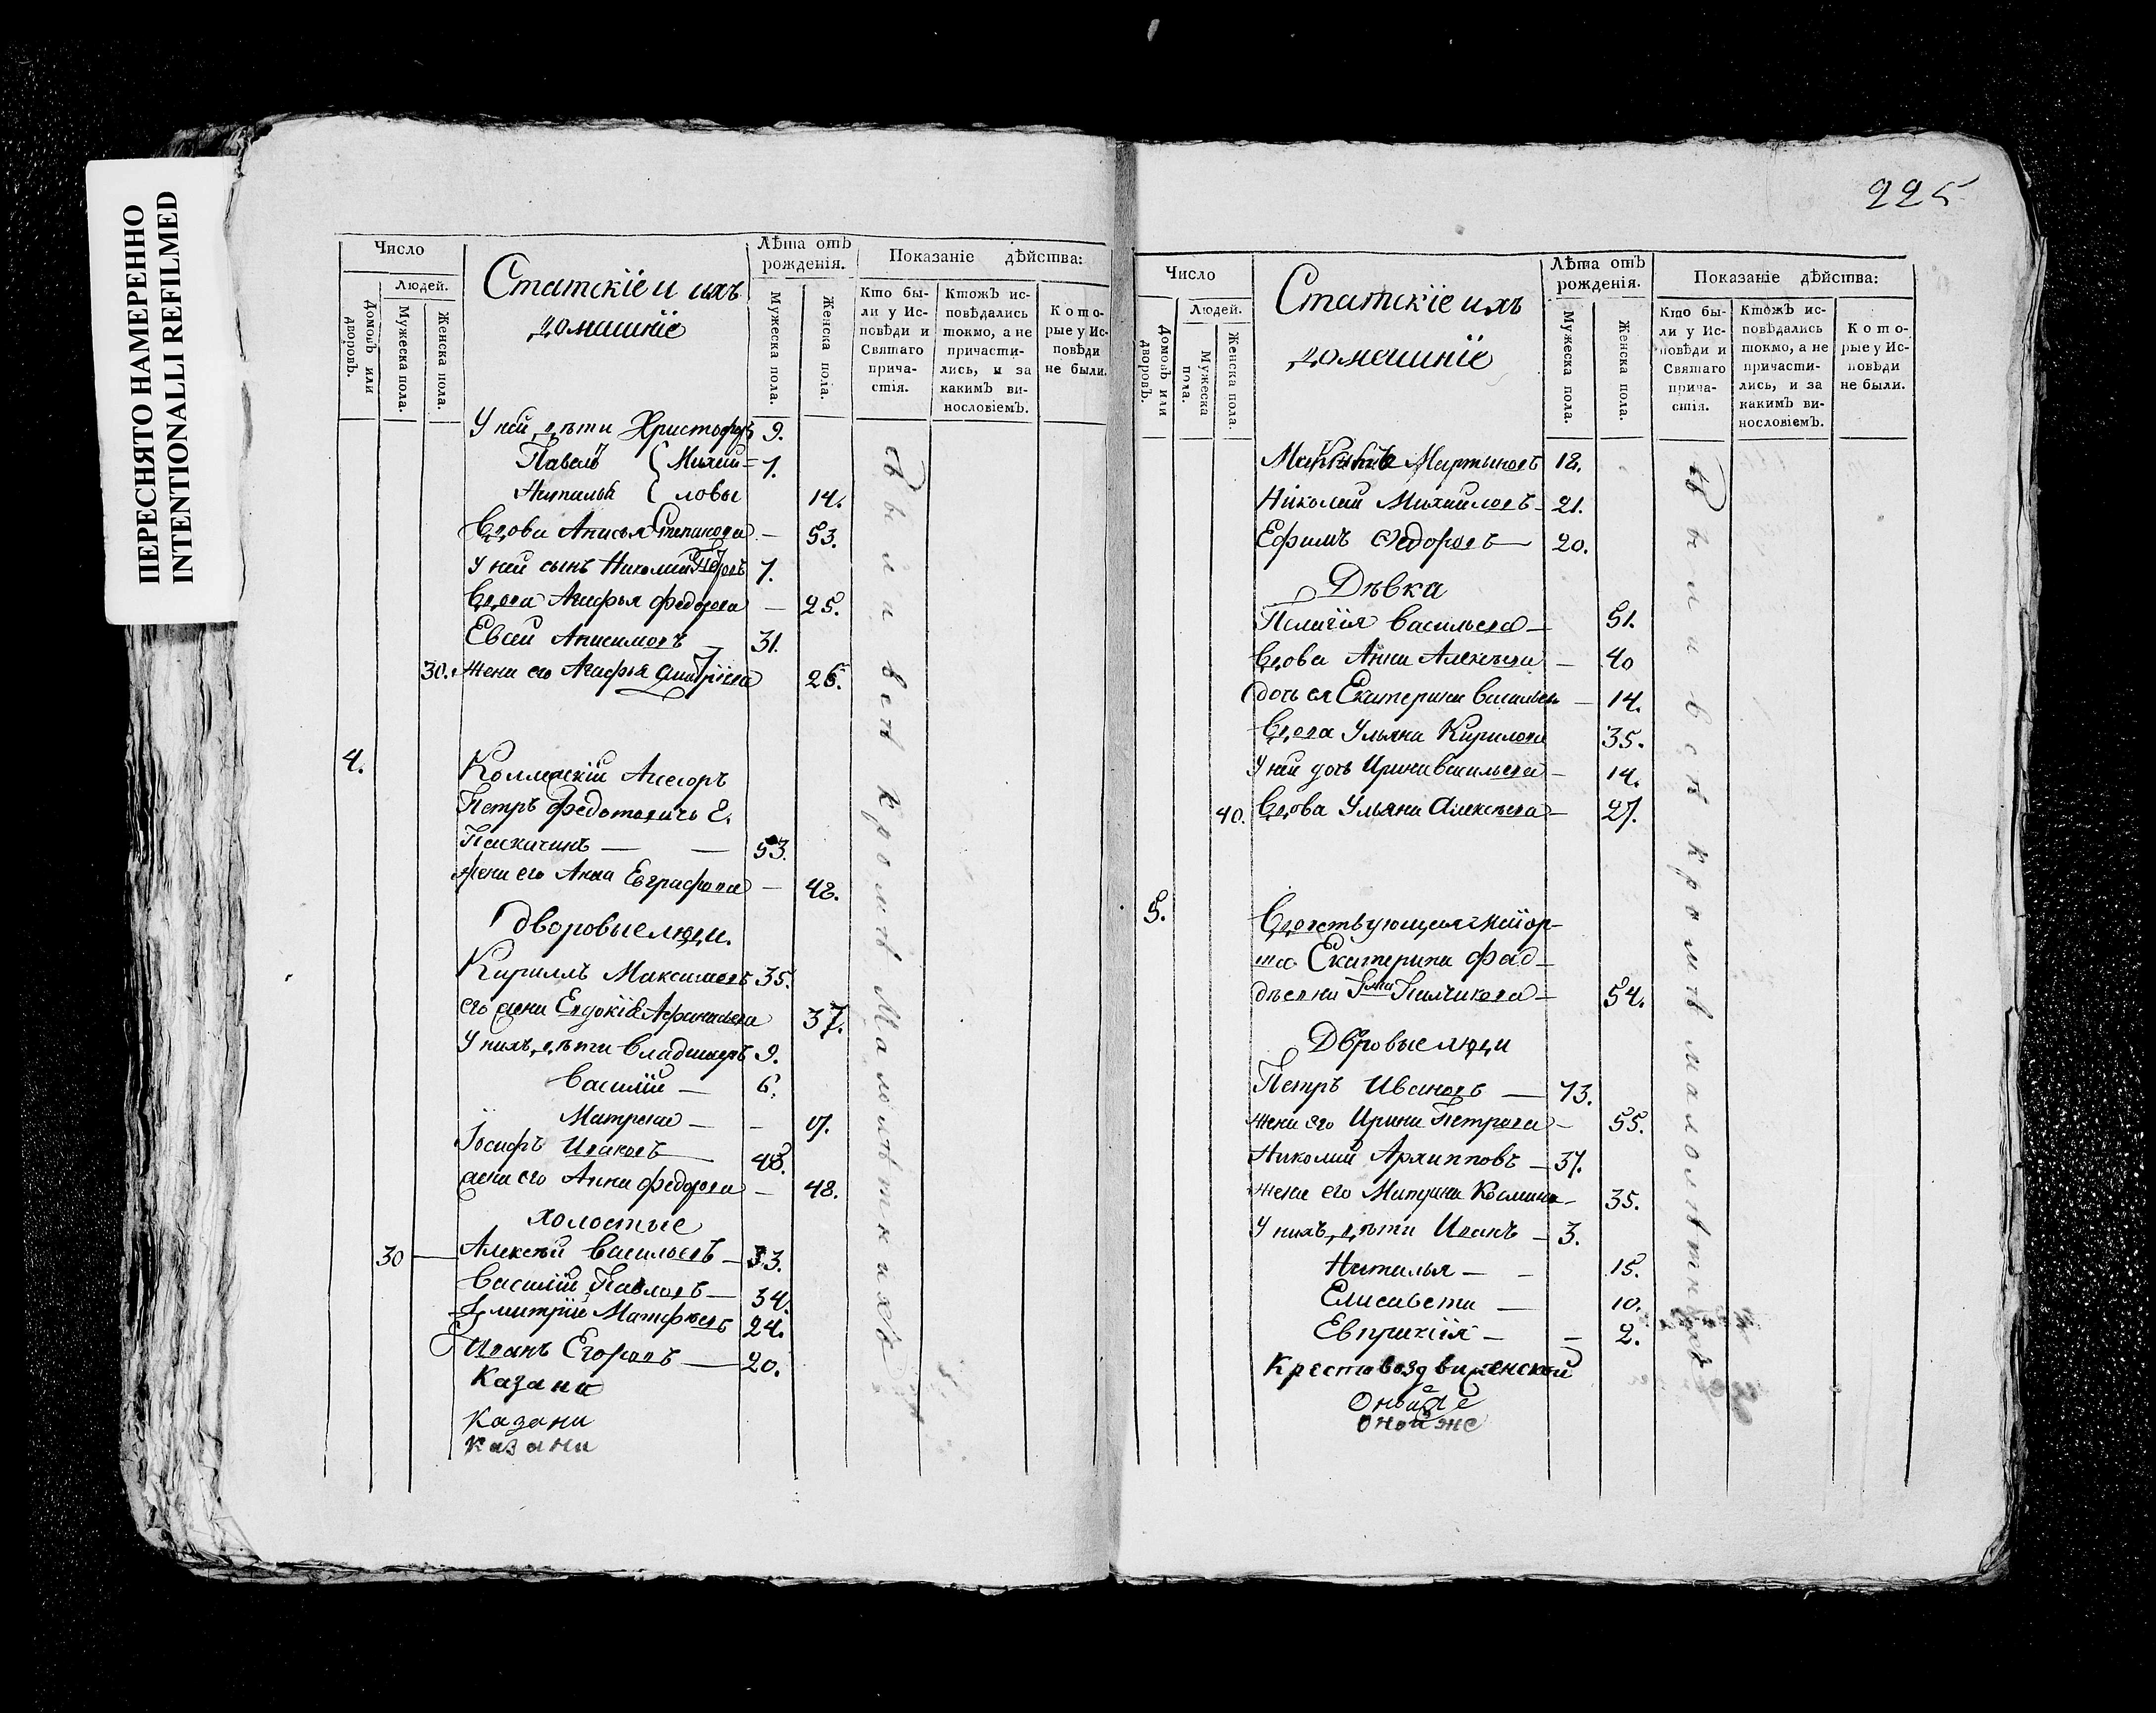 ПЕРЕСНЯТО НАМЕРЕННО
INTENTIONALLI REFILMED
225
Число
Людей.
Домовъ или дворовъ.
Мужеска пола.
Женска пола.
Статскіе и ихъ
домашніе
Лѣта отъ рожденія.
Мужеска пола.
Женска пола.
Показаніе дѣйства:
Кто были у Исповѣди и Святаго причастія.
Ктожъ исповѣдались токмо, а не причастились, и за какимъ винословіемъ.
Которые у Исповѣди не были.
У ней дѣти Христофоръ 9.
Павелъ { Михай= 7.
Наталья { ловы 14.
Вдова Анисья Степанова — 53.
У ней сынъ Николай 7.
Вдова Агафья Федорова — 25.
Евсей Анисимовъ 31.
30. Жена его Агафья 26.
4. Коллежскій Ассесоръ
Петръ Федотовичь Г.
53.
жена его Анна Евграфова — 42.
Дворовые люди.
Кириллъ Максимовъ 35.
его жена Евдокія Афанасьева 37.
У нихъ дѣти Владимеръ 9.
Василій — 6.
Матрена — — 17.
Іосифъ Исаковъ 48.
жена его Анна Федорова — 48.
холостые
30 — Алексѣй Васильевъ — 33.
Василій Павловъ — 34.
Дмитрій Матфѣевъ 24.
Иванъ Егоровъ — 20.
Казани
Казани
Казани
Всѣ кромѣ малолѣтнихъ
Число
Людей.
Домовъ или дворовъ.
Мужеска пола.
Женска пола.
Статскіе ихъ
домашніе
Лѣта отъ рожденія.
Мужеска пола.
Женска пола.
Показаніе дѣйства:
Кто были у Исповѣди и Святаго причастія.
Ктожъ исповѣдались токмо, а не причастились, и за какимъ винословіемъ.
Которые у Исповѣди не были.
Мартыновъ 18.
Николай Михайловъ 21.
Ефимъ Федоровъ — 20.
Дѣвка
Пелагія Васильева — 51.
Вдова Анна Алексѣева — 40
дочь ея Екатерина Васильев — 14.
Вдова Ульяна Кирилова 35.
У ней дочь Ирина Васильева — 14.
40. Вдова Ульяна Алексѣева — 27.
5. Вдовствующая Маіор-
ша Екатерина Фад-
дѣевна Г:жа Палчикова — 54.
Дворовые люди
Петръ Ивановъ — 73.
жена его Ирина Петрова — 55.
Николай Архипповъ — 37.
жена его Матрена Космина — 35.
У нихъ дѣти Иванъ — 3.
Наталья — — 15.
Елисавета — 10.
Евпраксія — — 2.
Крестовоздвиженской
Онойже
Онойже
Всѣ кромѣ малолѣтнихъ